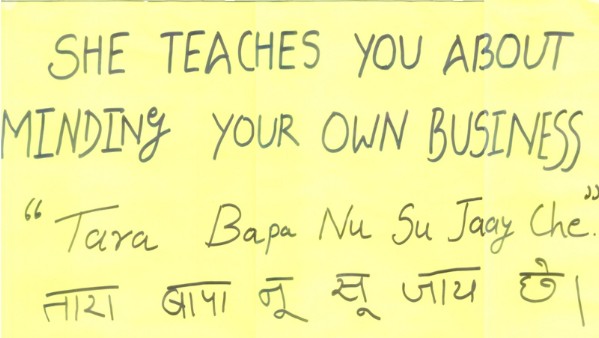 SHE TEACHES YOU ABOUT
MINDING YOUR OWN BUSINESS
“Tara Bapa Nu Su Jaay Che.”
तारा बापा नू सू जाय छे।